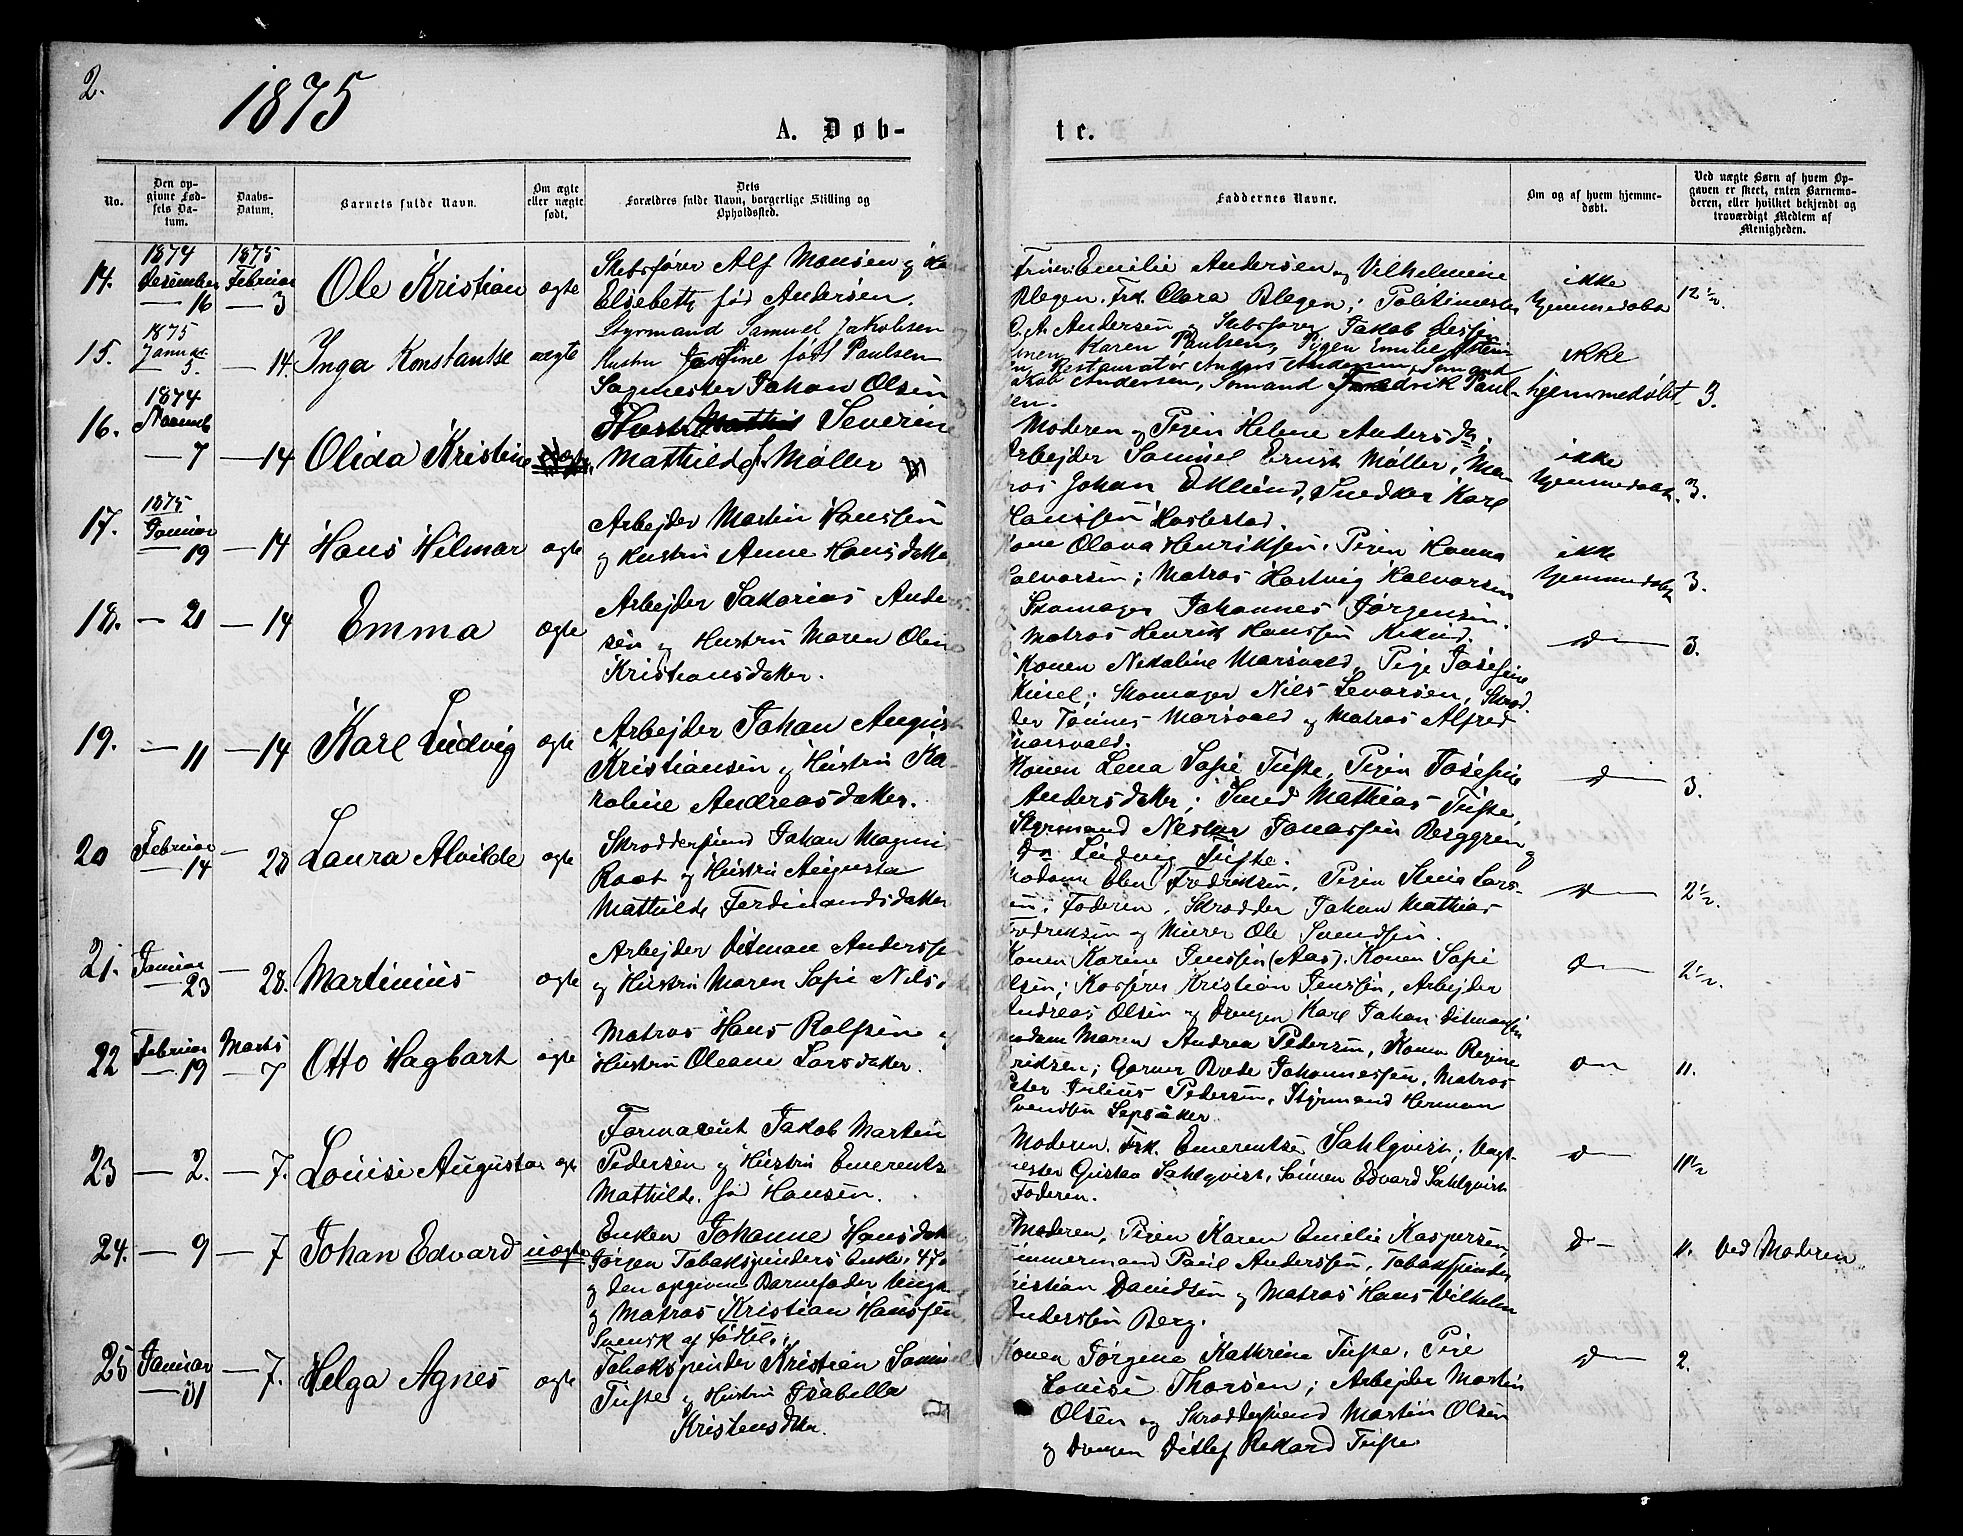 2.
1875
A. Døb-
te.
No.
Den op-
givne Fød-
sels Da-
tum.
Daabs-
Datum.
Barnets fulde Navn.
Om ægte
eller uægte
født.
Dets
Forældres fulde Navn, borgerlige Stilling og
Opholdssted.
Faddernes Navne.
Om og af hvem hjemme-
døbt.
Ved uægte Børn af hvem Op-
gaven er skeet, enten Barnemo-
deren, eller hvilket bekjendt og
troværdigt Medlem af
Menigheden.
14.
1874
Desember
— 16
1875
Februar
— 3
Ole Kristian
ægte
Skibsfører Alf Monsen og
Elsebeth fød Andersen.
Emilie Andersen og Vilhelmine
Blegen. Frk. Clara Blegen; Politimester
O. A. Andersen og Skibsfører Jakob
ikke
hjemmedøbt
12 ½
15.
1875
Januar
5.
— 14.
Inga Konstantse
uægte
Styrmand Samuel Jakobsen og
Hustru Josefine født Paulsen
Karen Paulsen, Pigen Emilie
Restauratør Anders Andersen, Sømand
Andersen, Sømand Fredrik Paul-
sen.
ikke
hjemmedøbt
3.
16.
1874
Novemb
— 7
— 14
Olida Kristine
Sagmester Johan Olsen
Severine
Mathilde f. Møller
Moderen og Pigen Helene Andersdtr;
Arbejder Samuel Ernst Møller, Ma-
tros Johan Eklund, Snedker Karl
Hanssen Hortestad.
ikke
hjemmedøbt.
3.
17.
1875
Januar
— 19
— 14
Hans Hilmar
ægte
Arbejder Martin Hanssen
og Hustru Anne Hansdatter
Kone Olava Henriksen, Pigen Hanna
Halvorsen; Matros Hartvig Halvorsen
Skomager Johannes Jørgensen.
Matros Henrik Hanssen
ikke
hjemmedøbt
3.
18.
— 21
— 14
Emma
ægte
Arbejder Sakarias Ander-
sen og Hustru Maren Olen
Kristiansdatter.
Konen Nikoline Marsvald, Pige Josefine
; Skomager Nils Sevarsen, Skræd-
der Tønnes Marsvald og Matros Alfred
Marsvald.
d—
3.
19.
— 11
— 14
Karl Ludvig
ægte
Arbejder Johan August
Kristiansen og Hustru Ka-
roline Andreasdatter.
Konen Lena Sofie Tufte, Pigen Josefine
Andersdatter; Smed Mathias Tufte,
Styrmand Nestor Jonassen Berggren og
Do Ludvig Tufte.
d—
3.
20
Februar
— 14
— 28
Laura Alvilde
ægte
Skræddersvend Johan Magnus
Roos og Hustru Augusta
Mathilde Ferdinandsdatter
Madam Elen Fredriksen, Pigen Stina Lars-
sen; Faderen, Skrædder Johan Mathias
Fredriksen og Murer Ole Svendsen.
d—
2 ½.
21.
Januar
— 23
— 28.
Martinius
ægte
Arbejder Ditman Anderssen
og Hustru Maren Sofie Nilsdatter
Konen Karine Jenssen (Aas), Konen Sofie
Olsen; Kristian Jenssen, Arbejder
Andreas Olsen og Drengen Karl Johan Ditmanssen
d—
2 ½.
22
Februar
— 19
Marts
— 7
Otto Hagbart
ægte
Matros Hans Rolfsen og
Hustru Oleane Larsdatter.
Madam Maren Andrea Pedersen, Konen Regine
Eriksen; Garver Brede Johannessen, Matros
Peter Julius Pedersen, Styrmand Herman
Svendsen Lepsaker.
d—
11.
23
— 2.
— 7.
Louise Augusta
ægte
Formand Jakob Martin
Pedersen og Hustru Emerentse
Mathilde fød Hansen.
Moderen. Frk. Emerentse Sahlqvist; Vagt-
mester Gustav Sahlqvist, Sønnen Edvard Sahlqvist
Faderen.
d—
11 ½
24.
— 9
— 7
Johan Edvard
uægte
Enken Johanne Hansdatter
Jørgen Tobakspinders Enke,
og den opgivne Barnefader Ungk.
og Matros Kristian Hanssen,
Svensk af Fødsel
Moderen, Pigen Karen Emelie Kaspersen,
Tømmermand Paul Anderssen, Tobakspinder
Kristian Davidsen og Matros Hans Vilhelm
Anderssen Berg.
d—
11.
Ved Moderen
25
Januar
— 31
— 7.
Helga Agnes
ægte
Tobakspinder Kristian Samuel
Tufte og Hustru Isabella
Kristensdtter.
Konen Jørgine Kathrine Tufte, Pige
Louise Thorsen; Arbejder Martin
Olsen og Skræddersvend Martin Olsen
og Drengen Ditlef Rikard Tufte
d—
2.